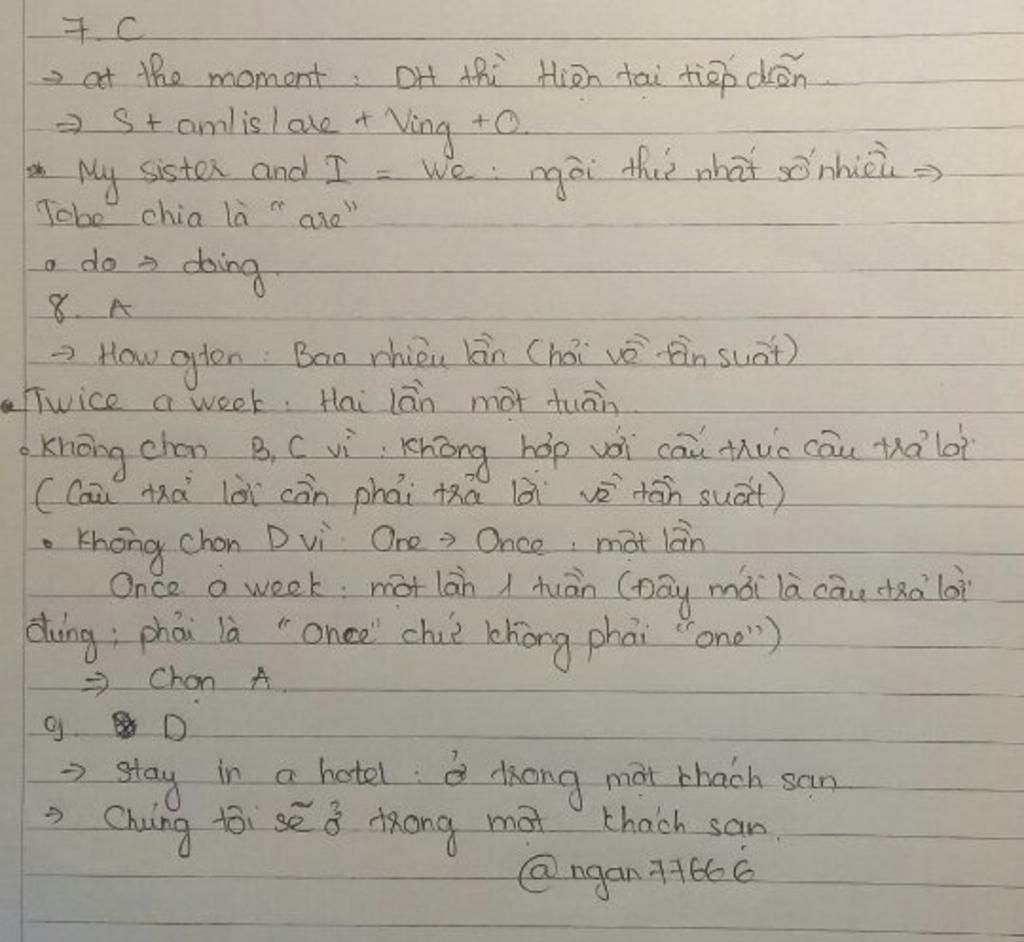 7. C
→ at the moment : DH thì Hiện tại tiếp diễn.
⇒ S + am/is/are + Ving + O.
* My sister and I = We : ngôi thứ nhất số nhiều ⇒
Tobe chia là "are"
o do → doing.
8. A
→ How often : Bao nhiêu lần (hỏi về tần suất)
• Twice a week : Hai lần một tuần.
• Không chọn B, C vì : không hợp với cấu trúc câu trả lời
(Câu trả lời cần phải trả lời về tần suất)
• Không chọn D vì : One → Once : một lần
Once a week : một lần 1 tuần (Đây mới là câu trả lời
đúng ; phải là "Once" chứ không phải "one")
⇒ Chọn A.
9. D
→ Stay in a hotel : ở trong một khách sạn
→ Chúng tôi sẽ ở trong một khách sạn.
@ngan77666